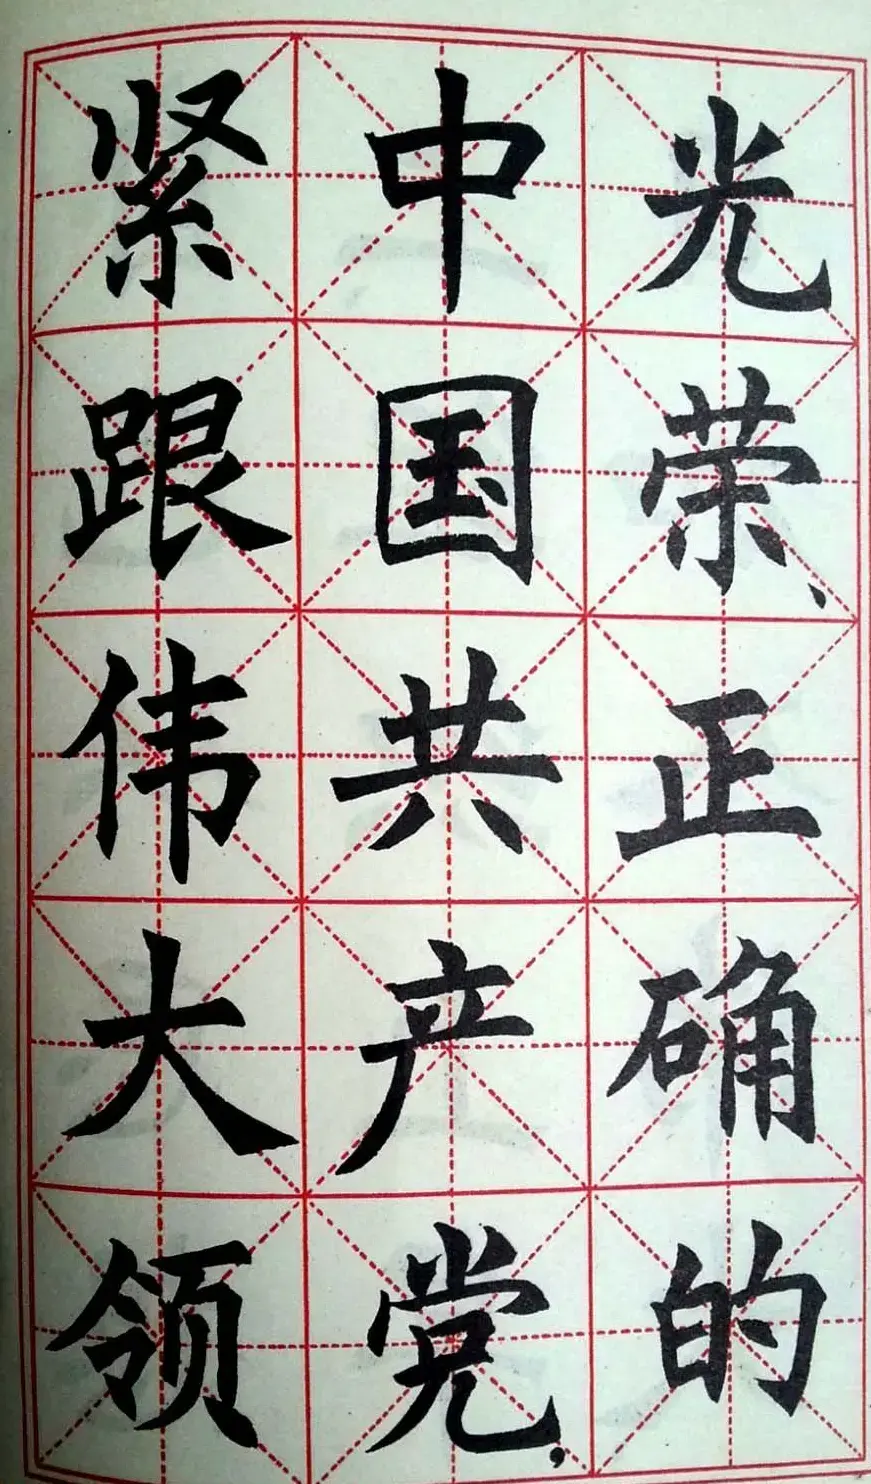 光荣、正确的
中国共产党，
紧跟伟大领